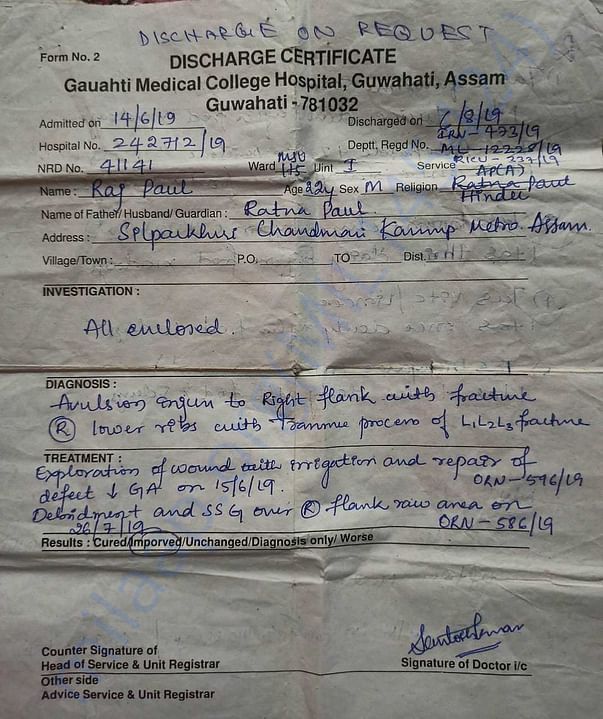 DISCHARGE ON REQUEST
Form No. 2
DISCHARGE CERTIFICATE
Gauahti Medical College Hospital, Guwahati, Assam
Guwahati - 781032
Admitted on 14/6/19 Discharged on 7/8/19
IRN-473/19
Hospital No. 242712/19 Deptt. Regd No. ML-12228/19
RICU-227/19
NRD No. 41141 Ward Uint I Service AP(A)
Name : Raj Paul Age 22y Sex M Religion Ratna Paul
Hindu
Name of Father/ Husband/ Guardian : Ratna Paul
Address : Chandmari Kamrup Metro. Assam.
Village/Town : P.O. TO Dist.
INVESTIGATION :
All enclosed.
DIAGNOSIS :
Avulsion injury to Right flank with fracture
(R) lower ribs with process of L1L2L3 fracture
TREATMENT :
Exploration of wound with irrigation and repair of
defect ↓ GA on 15/6/19. ORN-596/19
Debridment and SSG over (R) flank raw area on
26/7/19 ORN-586/19
Results : Cured/Imporved/Unchanged/Diagnosis only/ Worse
Counter Signature of
Head of Service & Unit Registrar
Signature of Doctor i/c
Other side
Advice Service & Unit Registrar